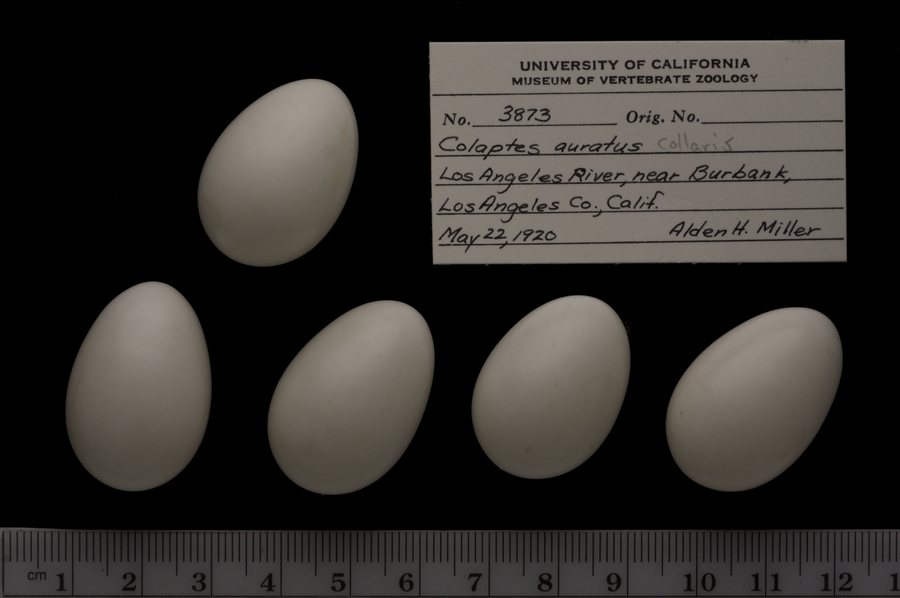 UNIVERSITY OF CALIFORNIA
MUSEUM OF VERTEBRATE ZOOLOGY
No. 3873 Orig. No.
Colaptes auratus collaris
Los Angeles River, near Burbank,
Los Angeles Co., Calif.
May 22, 1920 Alden H. Miller
cm 1 2 3 4 5 6 7 8 9 10 11 12 1